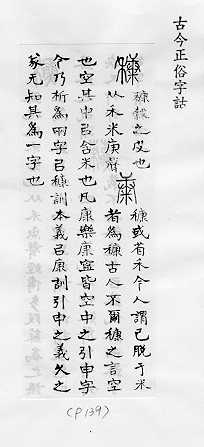 古今正俗字詁
穅 穅穀之皮也
从禾米庚聲
康 穅或省禾今人謂已脫于米
者為穅古人不爾穅之言空
也空其中㠯含米也凡康樂康寍皆空中之引申字
今乃析為兩字㠯穅訓本義㠯康訓引申之義久之
㒸无知其為一字也
(P139)